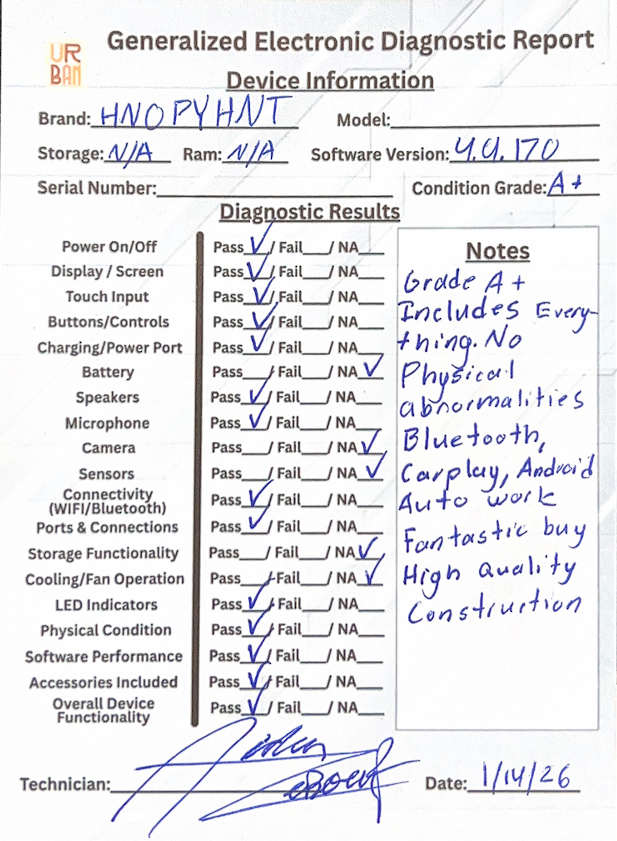 URBAN
Generalized Electronic Diagnostic Report
Device Information
Brand: HNOPYHNT Model:
Storage: N/A Ram: N/A Software Version: 4.9.170
Serial Number: Condition Grade: A+
Diagnostic Results
Power On/Off Pass ✓ / Fail / NA
Display / Screen Pass ✓ / Fail / NA
Touch Input Pass ✓ / Fail / NA
Buttons/Controls Pass ✓ / Fail / NA
Charging/Power Port Pass ✓ / Fail / NA
Battery Pass / Fail / NA ✓
Speakers Pass ✓ / Fail / NA
Microphone Pass ✓ / Fail / NA
Camera Pass / Fail / NA ✓
Sensors Pass / Fail / NA ✓
Connectivity
(WIFI/Bluetooth) Pass ✓ / Fail / NA
Ports & Connections Pass ✓ / Fail / NA
Storage Functionality Pass / Fail / NA ✓
Cooling/Fan Operation Pass / Fail / NA ✓
LED Indicators Pass ✓ / Fail / NA
Physical Condition Pass ✓ / Fail / NA
Software Performance Pass ✓ / Fail / NA
Accessories Included Pass ✓ / Fail / NA
Overall Device
Functionality Pass ✓ / Fail / NA
Notes
Grade A+
Includes Every-
thing. No
Physical
abnormalities
Bluetooth,
Carplay, Android
Auto work
Fantastic buy
High Quality
Construction
Technician:
Date: 1/14/26